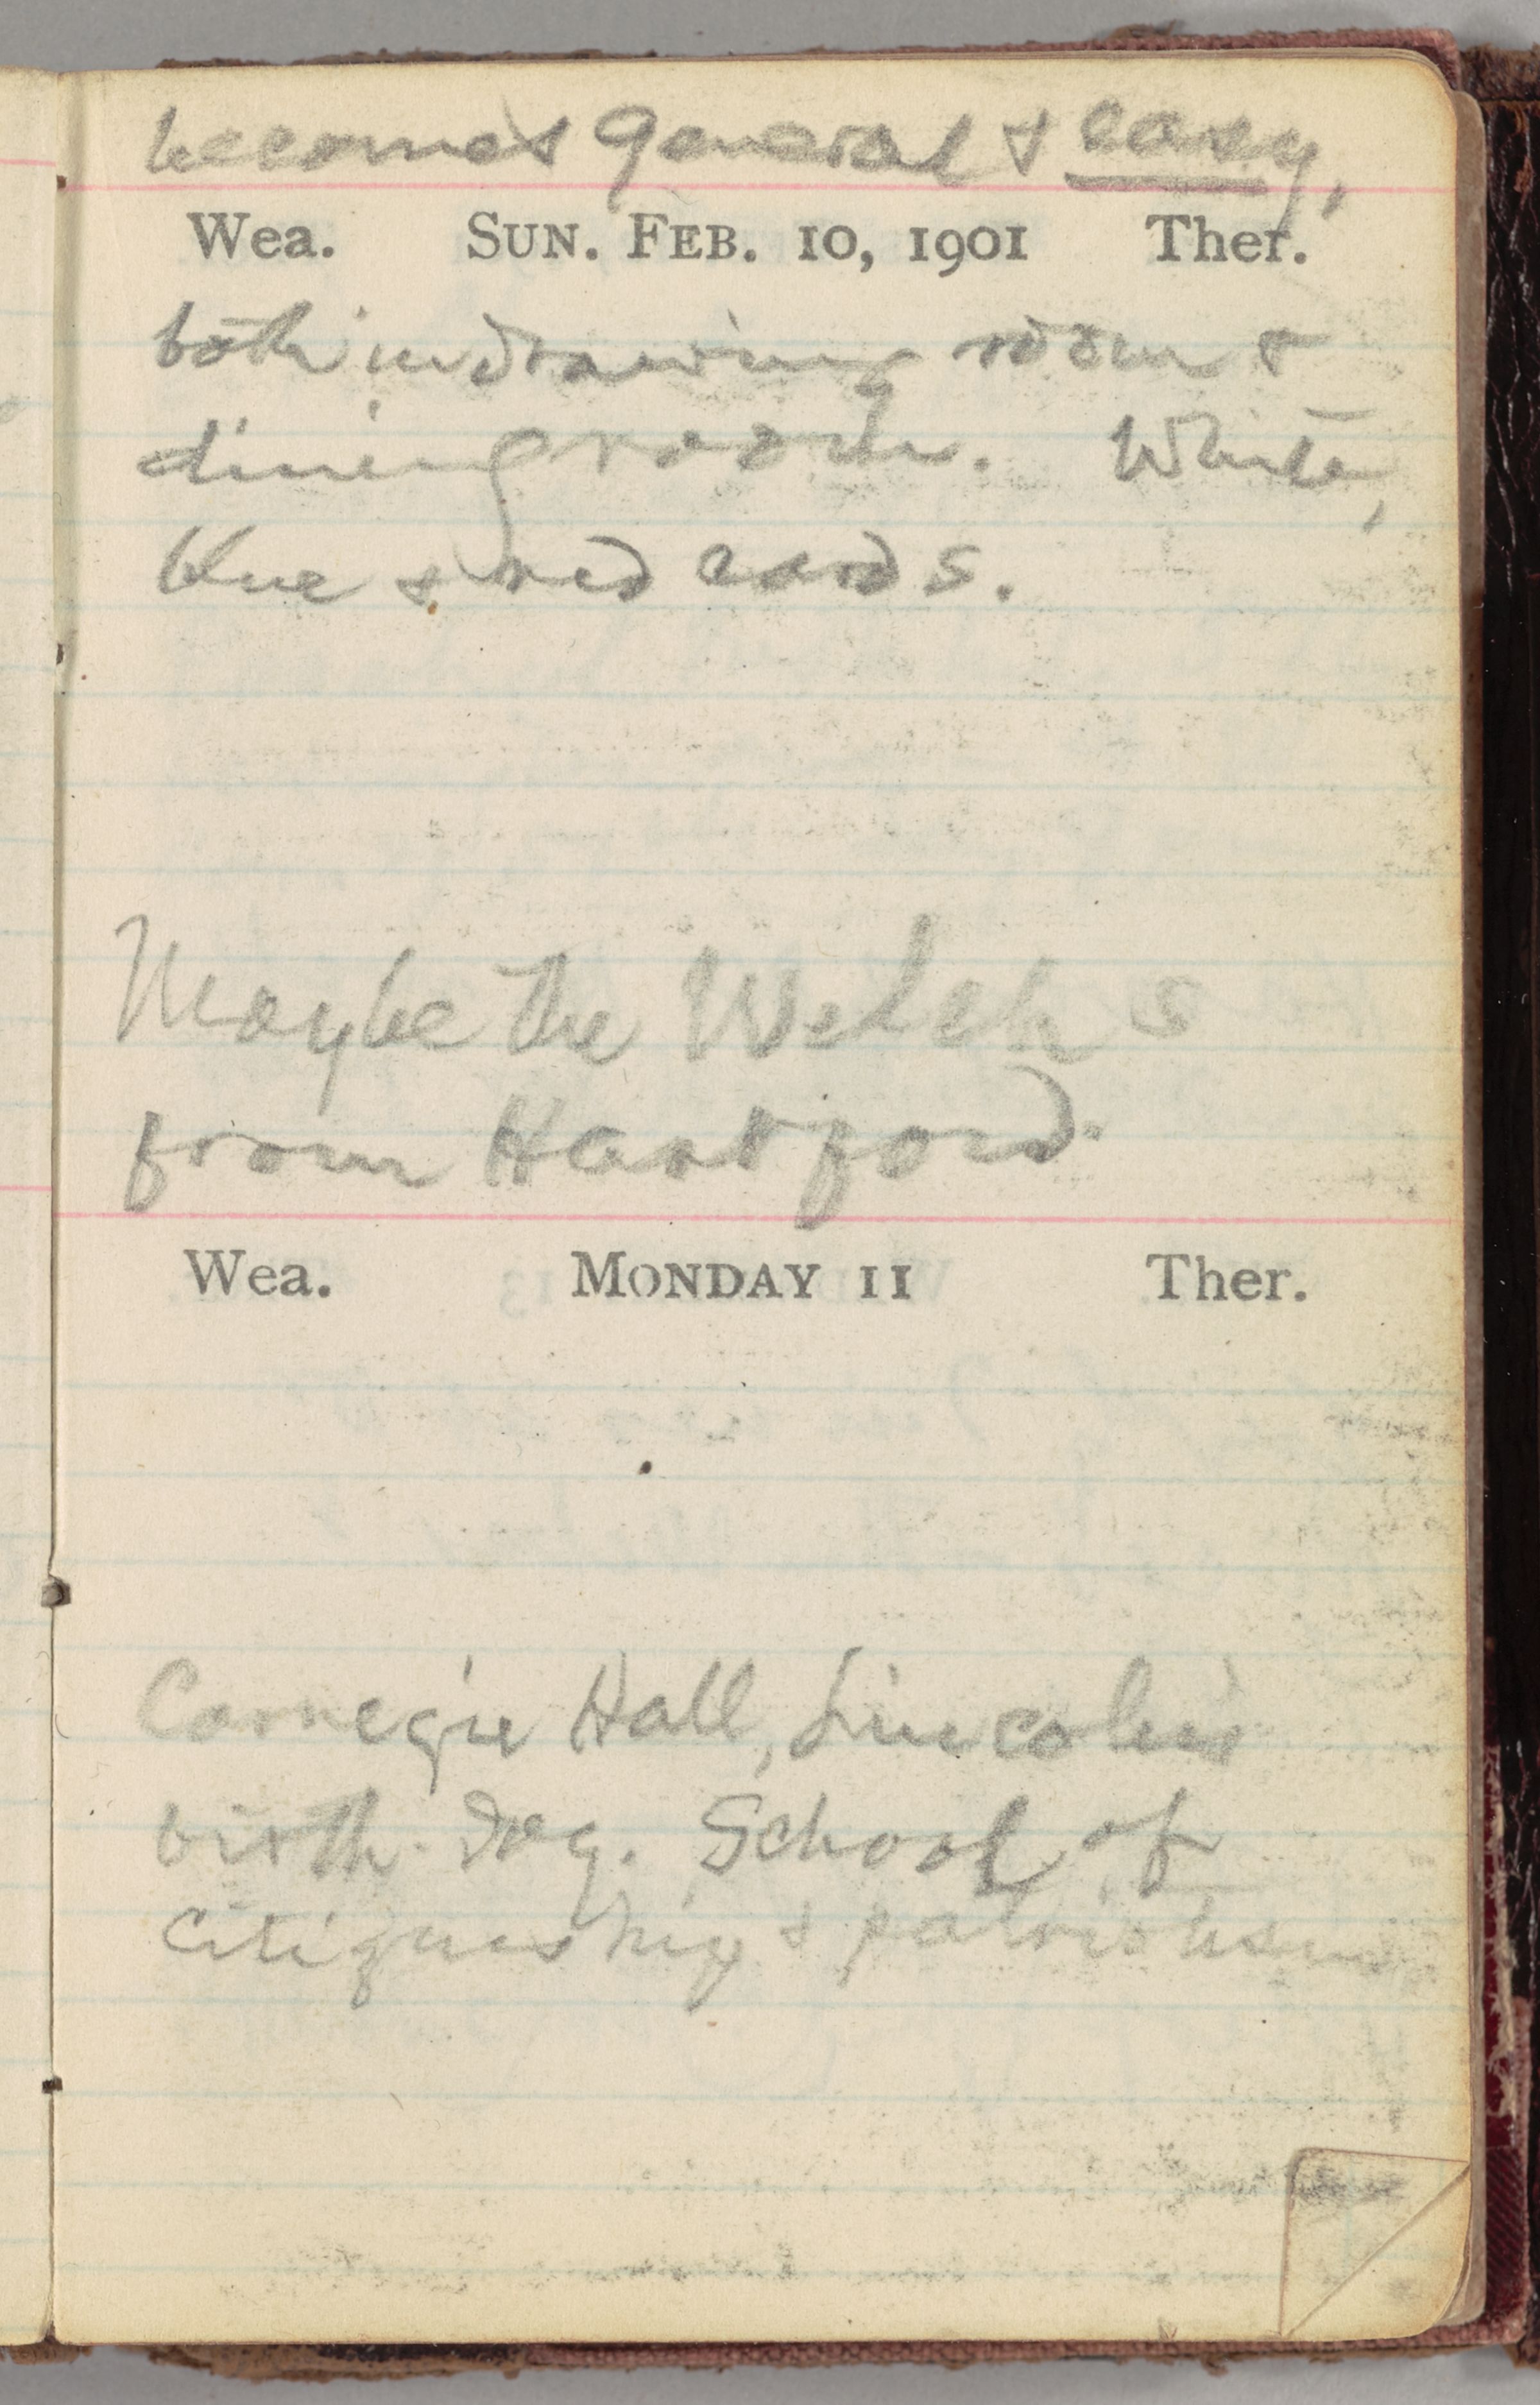 becomes general & easy,
Wea. SUN. FEB. 10, 1901 Ther.
both in drawing room &
dining room. White,
blue & red cards.
Maybe the Welchs
from Hartford.
Wea. MONDAY 11 Ther.
Carnegie Hall, Lincoln's
birth-day. School of
citizenship & patriotism